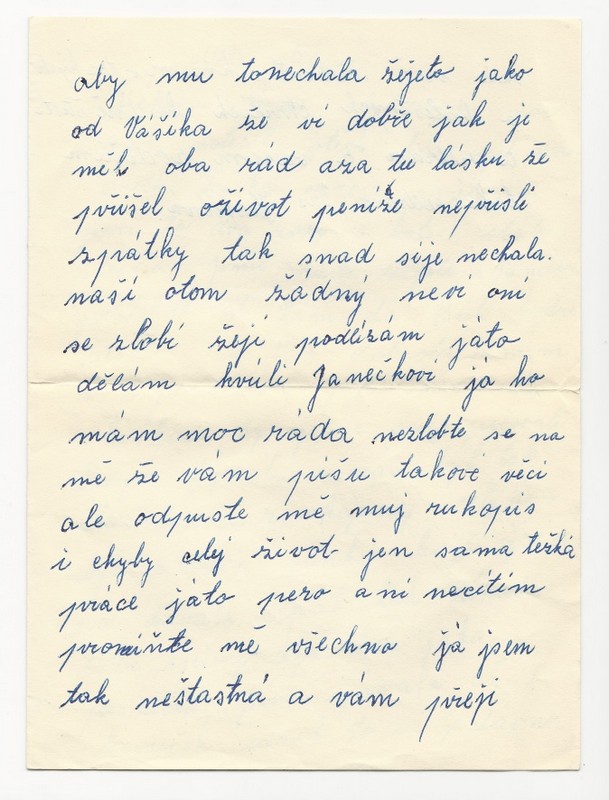 aby mu tonechala žejeto jako
od Vášíka že ví dobře jak je
měl oba rád aza tu lásku že
přišel oživot peníze nepřisli
zpátky tak snad sije nechala.
naší otom žádný neví oni
se zlobí žejí podlízám játo
dělám kvúli Janečkovi já ho
mám moc ráda nezlobte se na
mě že vám píšu takové věci
ale odpuste mě muj rukopis
i chyby celej život jen sama težká
práce játo pero aní necítím
promiňte mě všechno já jsem
tak neštastná a vám přeji